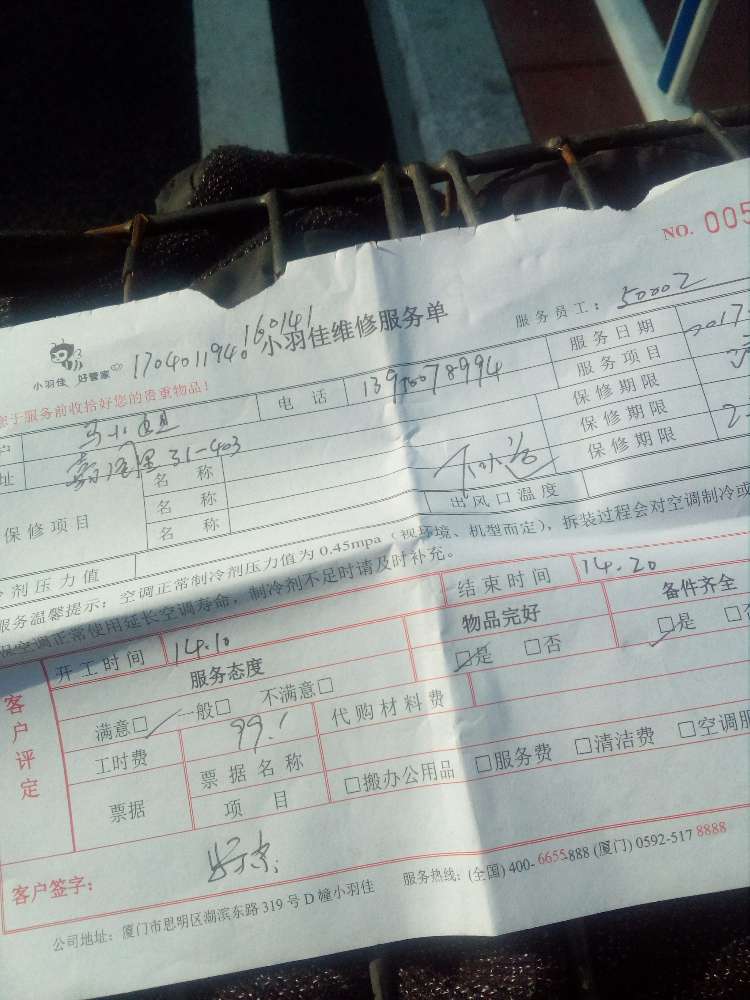 NO. 005
小羽佳 好管家
170401194016014!
小羽佳维修服务单
服务员工：50002
您于服务前收拾好您的贵重物品！
户
电话
服务日期 2017
址 31-403
服务项目
保修项目
名称
保修期限
名称
保修期限
名称
保修期限
出风口温度
剂压力值
服务温馨提示：空调正常制冷剂压力值为 0.45mpa（视环境、机型而定），拆装过程会对空调制冷或
保空调正常使用延长空调寿命，制冷剂不足时请及时补充。
开工时间 14.10
结束时间 14.20
客户评定
服务态度
物品完好
备件齐全
满意□ 一般□ 不满意□
□是 □否
□是 □否
工时费 99.!
代购材料费
票据
票据名称
□搬办公用品 □服务费 □清洁费 □空调服
项目
客户签字：
公司地址：厦门市思明区湖滨东路 319 号 D 幢小羽佳
服务热线：(全国) 400-6655-888 (厦门) 0592-517 8888